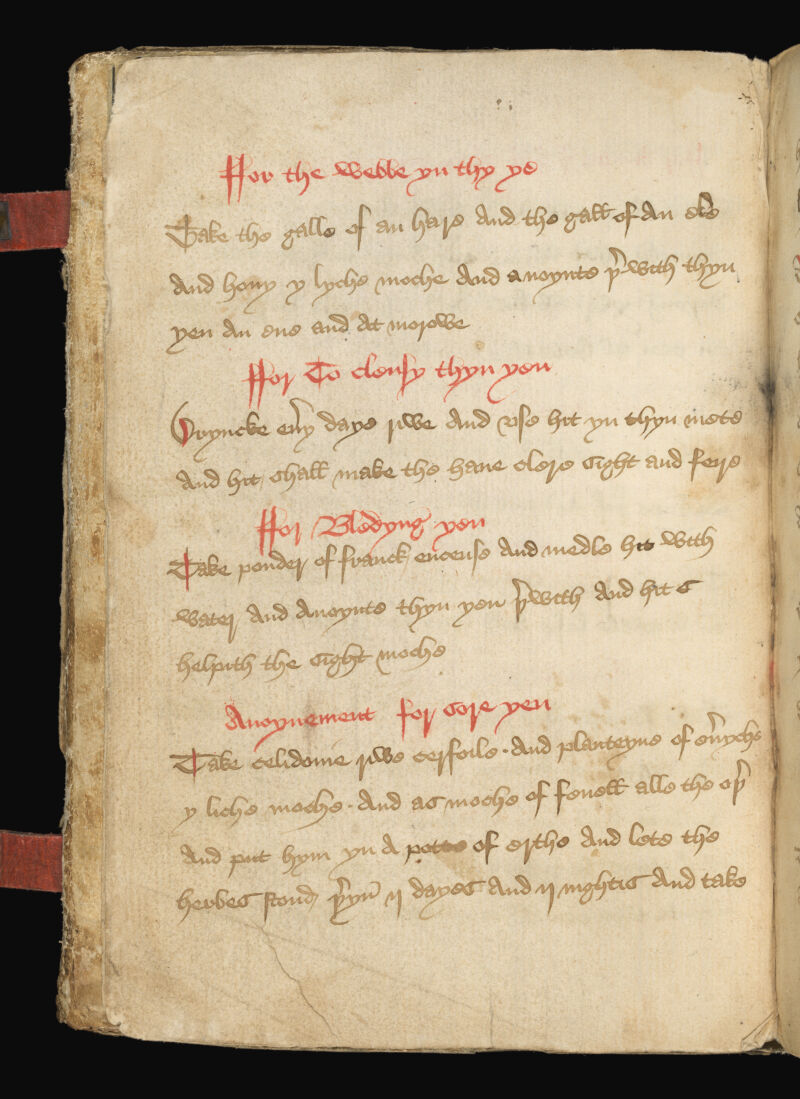 Ffor the webbe yn thy ye
Take the galle of an hare And the gall of An ele
And hony y lyche moche And anoynte þ̉ wtth thyn
yen An eue and At morowe
Ffor To clensy thyn yen
Dryncke eủy daye rwe And vse hit yn thyn mete
And hit shall make the haue clere sight and feire
Ffor Bledyng yen
Take pouder of franck encense And medle hit wtth
water And Anoynte thyn yen þ̉wtth And hit s
helpith the sight moche
Anoynement for sore yen
Take celidonie rwe cerfoile · And planteyne of eủyche
y liche moche · And as moche of fenell alle the oþ̉
And put hym yn A potte of erthe And lete the
herbes stond þ̉yn ij dayes And ij nightis And take